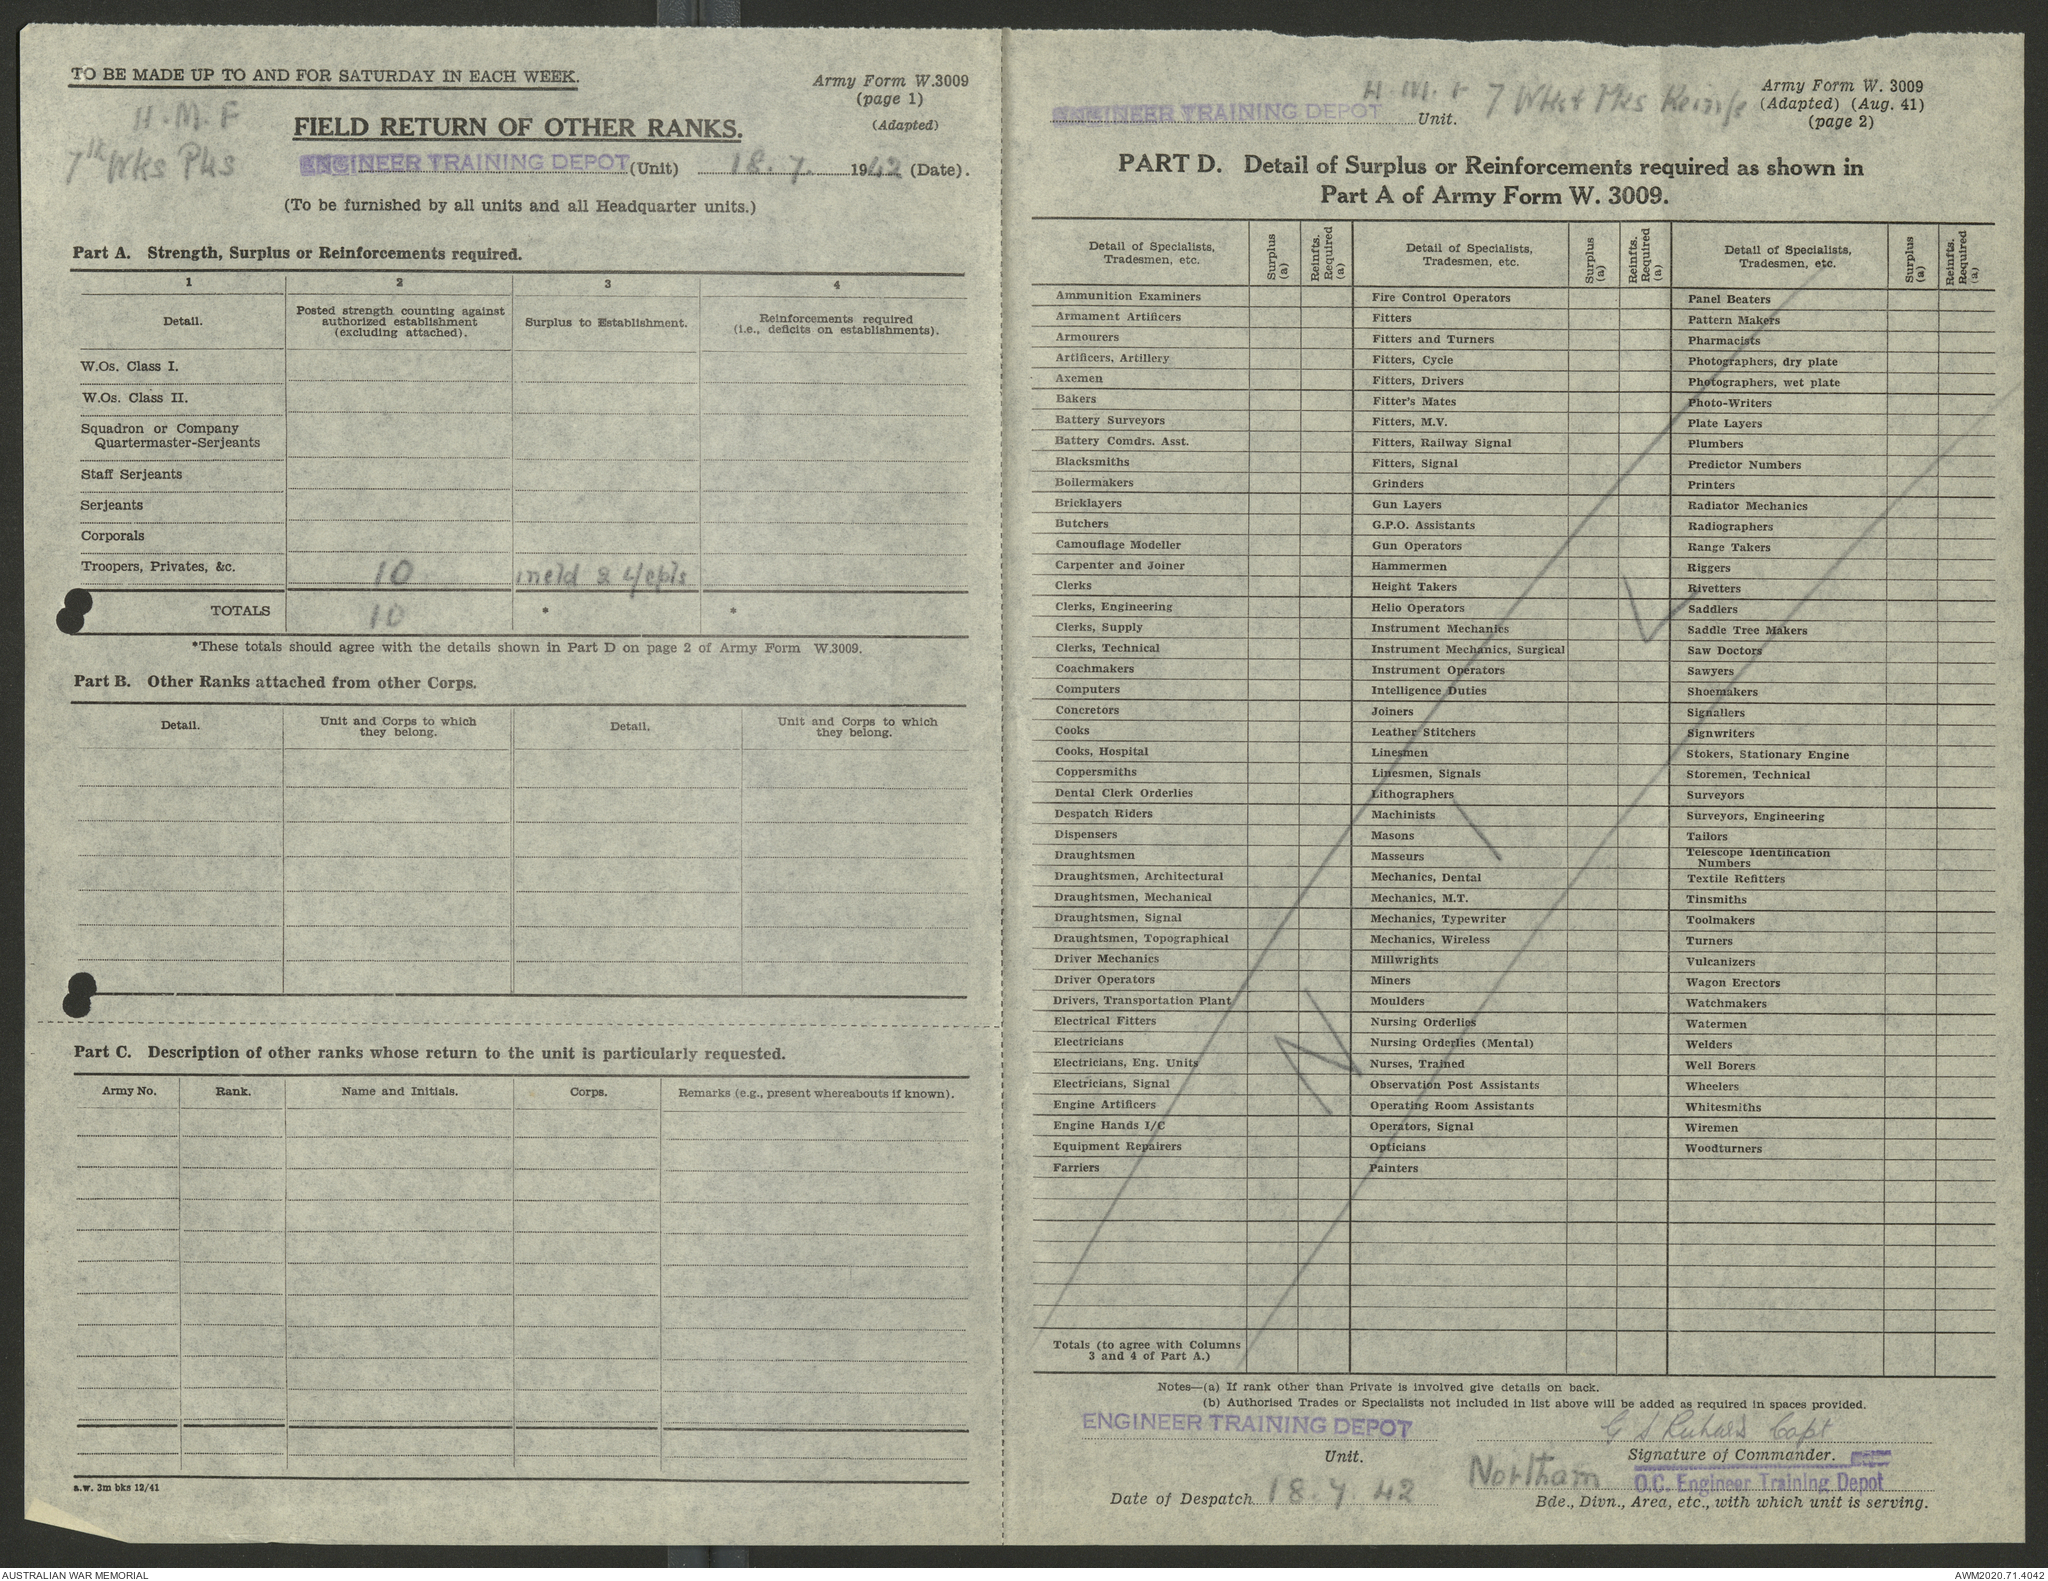 TO BE MADE UP TO AND FOR SATURDAY IN EACH WEEK.
Army Form W.3009
(page 1)
(Adapted)
H.M.F
7th Wks Pks
FIELD RETURN OF OTHER RANKS.
ENGINEER TRAINING DEPOT (Unit) 18.7. 1942 (Date).
(To be furnished by all units and all Headquarter units.)
Part A. Strength, Surplus or Reinforcements required.
1 2 3 4
Detail.
Posted strength counting against authorized establishment (excluding attached).
Surplus to Establishment.
Reinforcements required (i.e., deficits on establishments).
W.Os. Class I.
W.Os. Class II.
Squadron or Company
Quartermaster-Serjeants
Staff Serjeants
Serjeants
Corporals
Troopers, Privates, &c. 10 incld 2
TOTALS 10 * *
*These totals should agree with the details shown in Part D on page 2 of Army Form W.3009.
Part B. Other Ranks attached from other Corps.
Detail.
Unit and Corps to which they belong.
Detail.
Unit and Corps to which they belong.
Part C. Description of other ranks whose return to the unit is particularly requested.
Army No. Rank. Name and Initials. Corps. Remarks (e.g., present whereabouts if known).
a.w. 3m bks 12/41
H.M.F 7 Wks Pks Reinfs
ENGINEER TRAINING DEPOT Unit.
Army Form W. 3009
(Adapted) (Aug. 41)
(page 2)
PART D. Detail of Surplus or Reinforcements required as shown in
Part A of Army Form W. 3009.
Detail of Specialists, Tradesmen, etc.
Surplus (a)
Reinfts. Required (a)
Detail of Specialists, Tradesmen, etc.
Surplus (a)
Reinfts. Required (a)
Detail of Specialists, Tradesmen, etc.
Surplus (a)
Reinfts. Required (a)
Ammunition Examiners
Armament Artificers
Armourers
Artificers, Artillery
Axemen
Bakers
Battery Surveyors
Battery Comdrs. Asst.
Blacksmiths
Boilermakers
Bricklayers
Butchers
Camouflage Modeller
Carpenter and Joiner
Clerks
Clerks, Engineering
Clerks, Supply
Clerks, Technical
Coachmakers
Computers
Concretors
Cooks
Cooks, Hospital
Coppersmiths
Dental Clerk Orderlies
Despatch Riders
Dispensers
Draughtsmen
Draughtsmen, Architectural
Draughtsmen, Mechanical
Draughtsmen, Signal
Draughtsmen, Topographical
Driver Mechanics
Driver Operators
Drivers, Transportation Plant
Electrical Fitters
Electricians
Electricians, Eng. Units
Electricians, Signal
Engine Artificers
Engine Hands I/C
Equipment Repairers
Farriers
Fire Control Operators
Fitters
Fitters and Turners
Fitters, Cycle
Fitters, Drivers
Fitter's Mates
Fitters, M.V.
Fitters, Railway Signal
Fitters, Signal
Grinders
Gun Layers
G.P.O. Assistants
Gun Operators
Hammermen
Height Takers
Helio Operators
Instrument Mechanics
Instrument Mechanics, Surgical
Instrument Operators
Intelligence Duties
Joiners
Leather Stitchers
Linesmen
Linesmen, Signals
Lithographers
Machinists
Masons
Masseurs
Mechanics, Dental
Mechanics, M.T.
Mechanics, Typewriter
Mechanics, Wireless
Millwrights
Miners
Moulders
Nursing Orderlies
Nursing Orderlies (Mental)
Nurses, Trained
Observation Post Assistants
Operating Room Assistants
Operators, Signal
Opticians
Painters
Panel Beaters
Pattern Makers
Pharmacists
Photographers, dry plate
Photographers, wet plate
Photo-Writers
Plate Layers
Plumbers
Predictor Numbers
Printers
Radiator Mechanics
Radiographers
Range Takers
Riggers
Rivetters
Saddlers
Saddle Tree Makers
Saw Doctors
Sawyers
Shoemakers
Signallers
Signwriters
Stokers, Stationary Engine
Storemen, Technical
Surveyors
Surveyors, Engineering
Tailors
Telescope Identification
Numbers
Textile Refitters
Tinsmiths
Toolmakers
Turners
Vulcanizers
Wagon Erectors
Watchmakers
Watermen
Welders
Well Borers
Wheelers
Whitesmiths
Wiremen
Woodturners
NIL
Totals (to agree with Columns
3 and 4 of Part A.)
Notes—(a) If rank other than Private is involved give details on back.
(b) Authorised Trades or Specialists not included in list above will be added as required in spaces provided.
ENGINEER TRAINING DEPOT
Unit.
Capt
Signature of Commander.
O.C. Engineer Training Depot
Northam
Date of Despatch 18.7.42
Bde., Divn., Area, etc., with which unit is serving.
AUSTRALIAN WAR MEMORIAL
AWM2020.71.4042